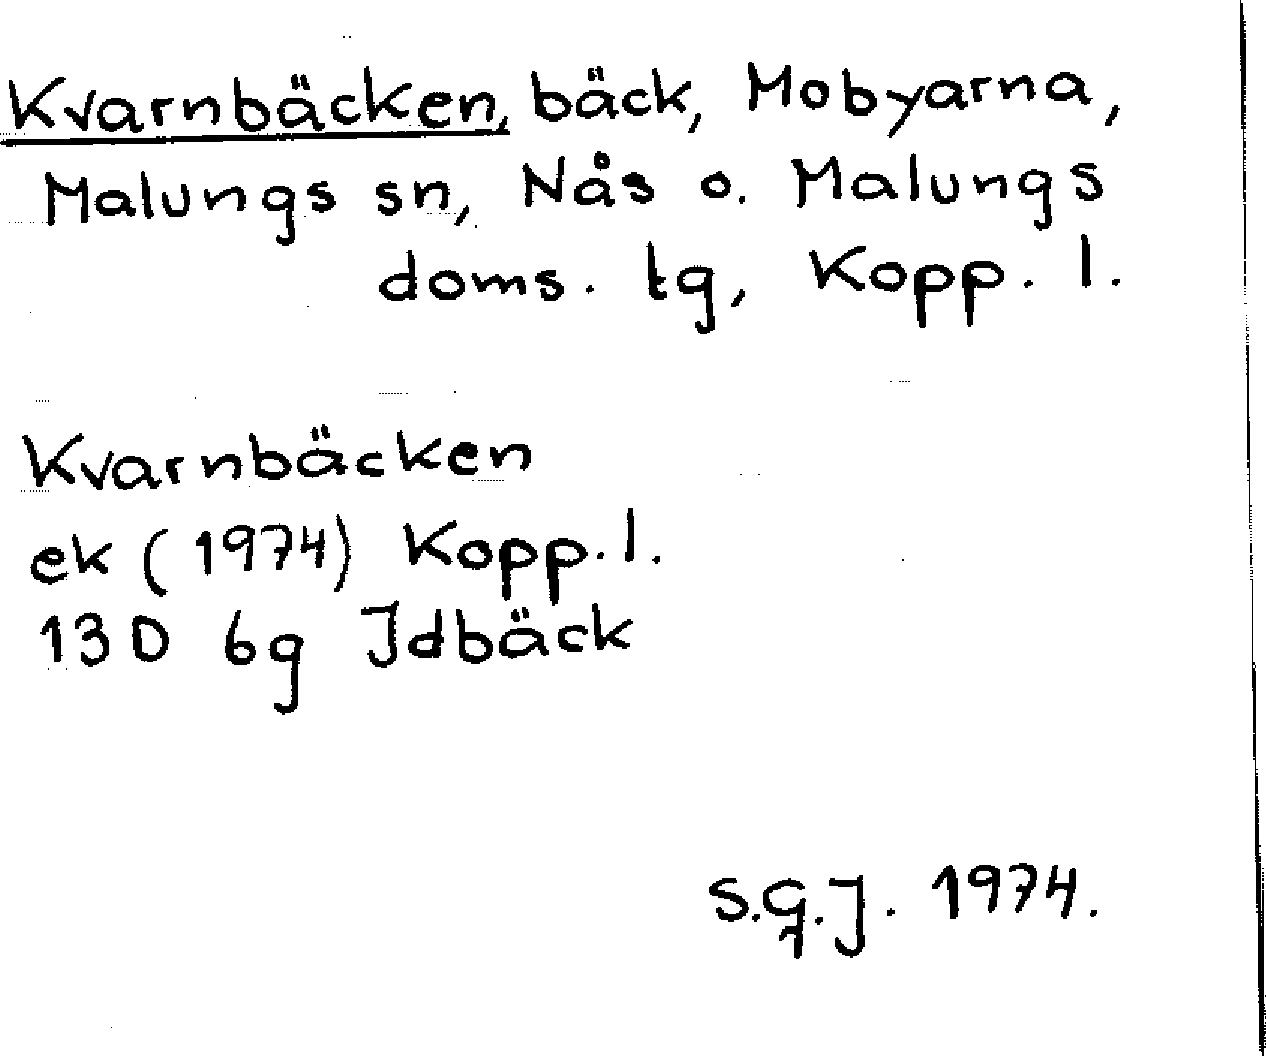 Kvarnbäcken, bäck, Mobyarna,
Malungs sn, Nås o. Malungs
doms. tg, Kopp. l.
Kvarnbäcken
ek (1974) Kopp. l.
13D 6g Idbäck
S.G.J. 1974.